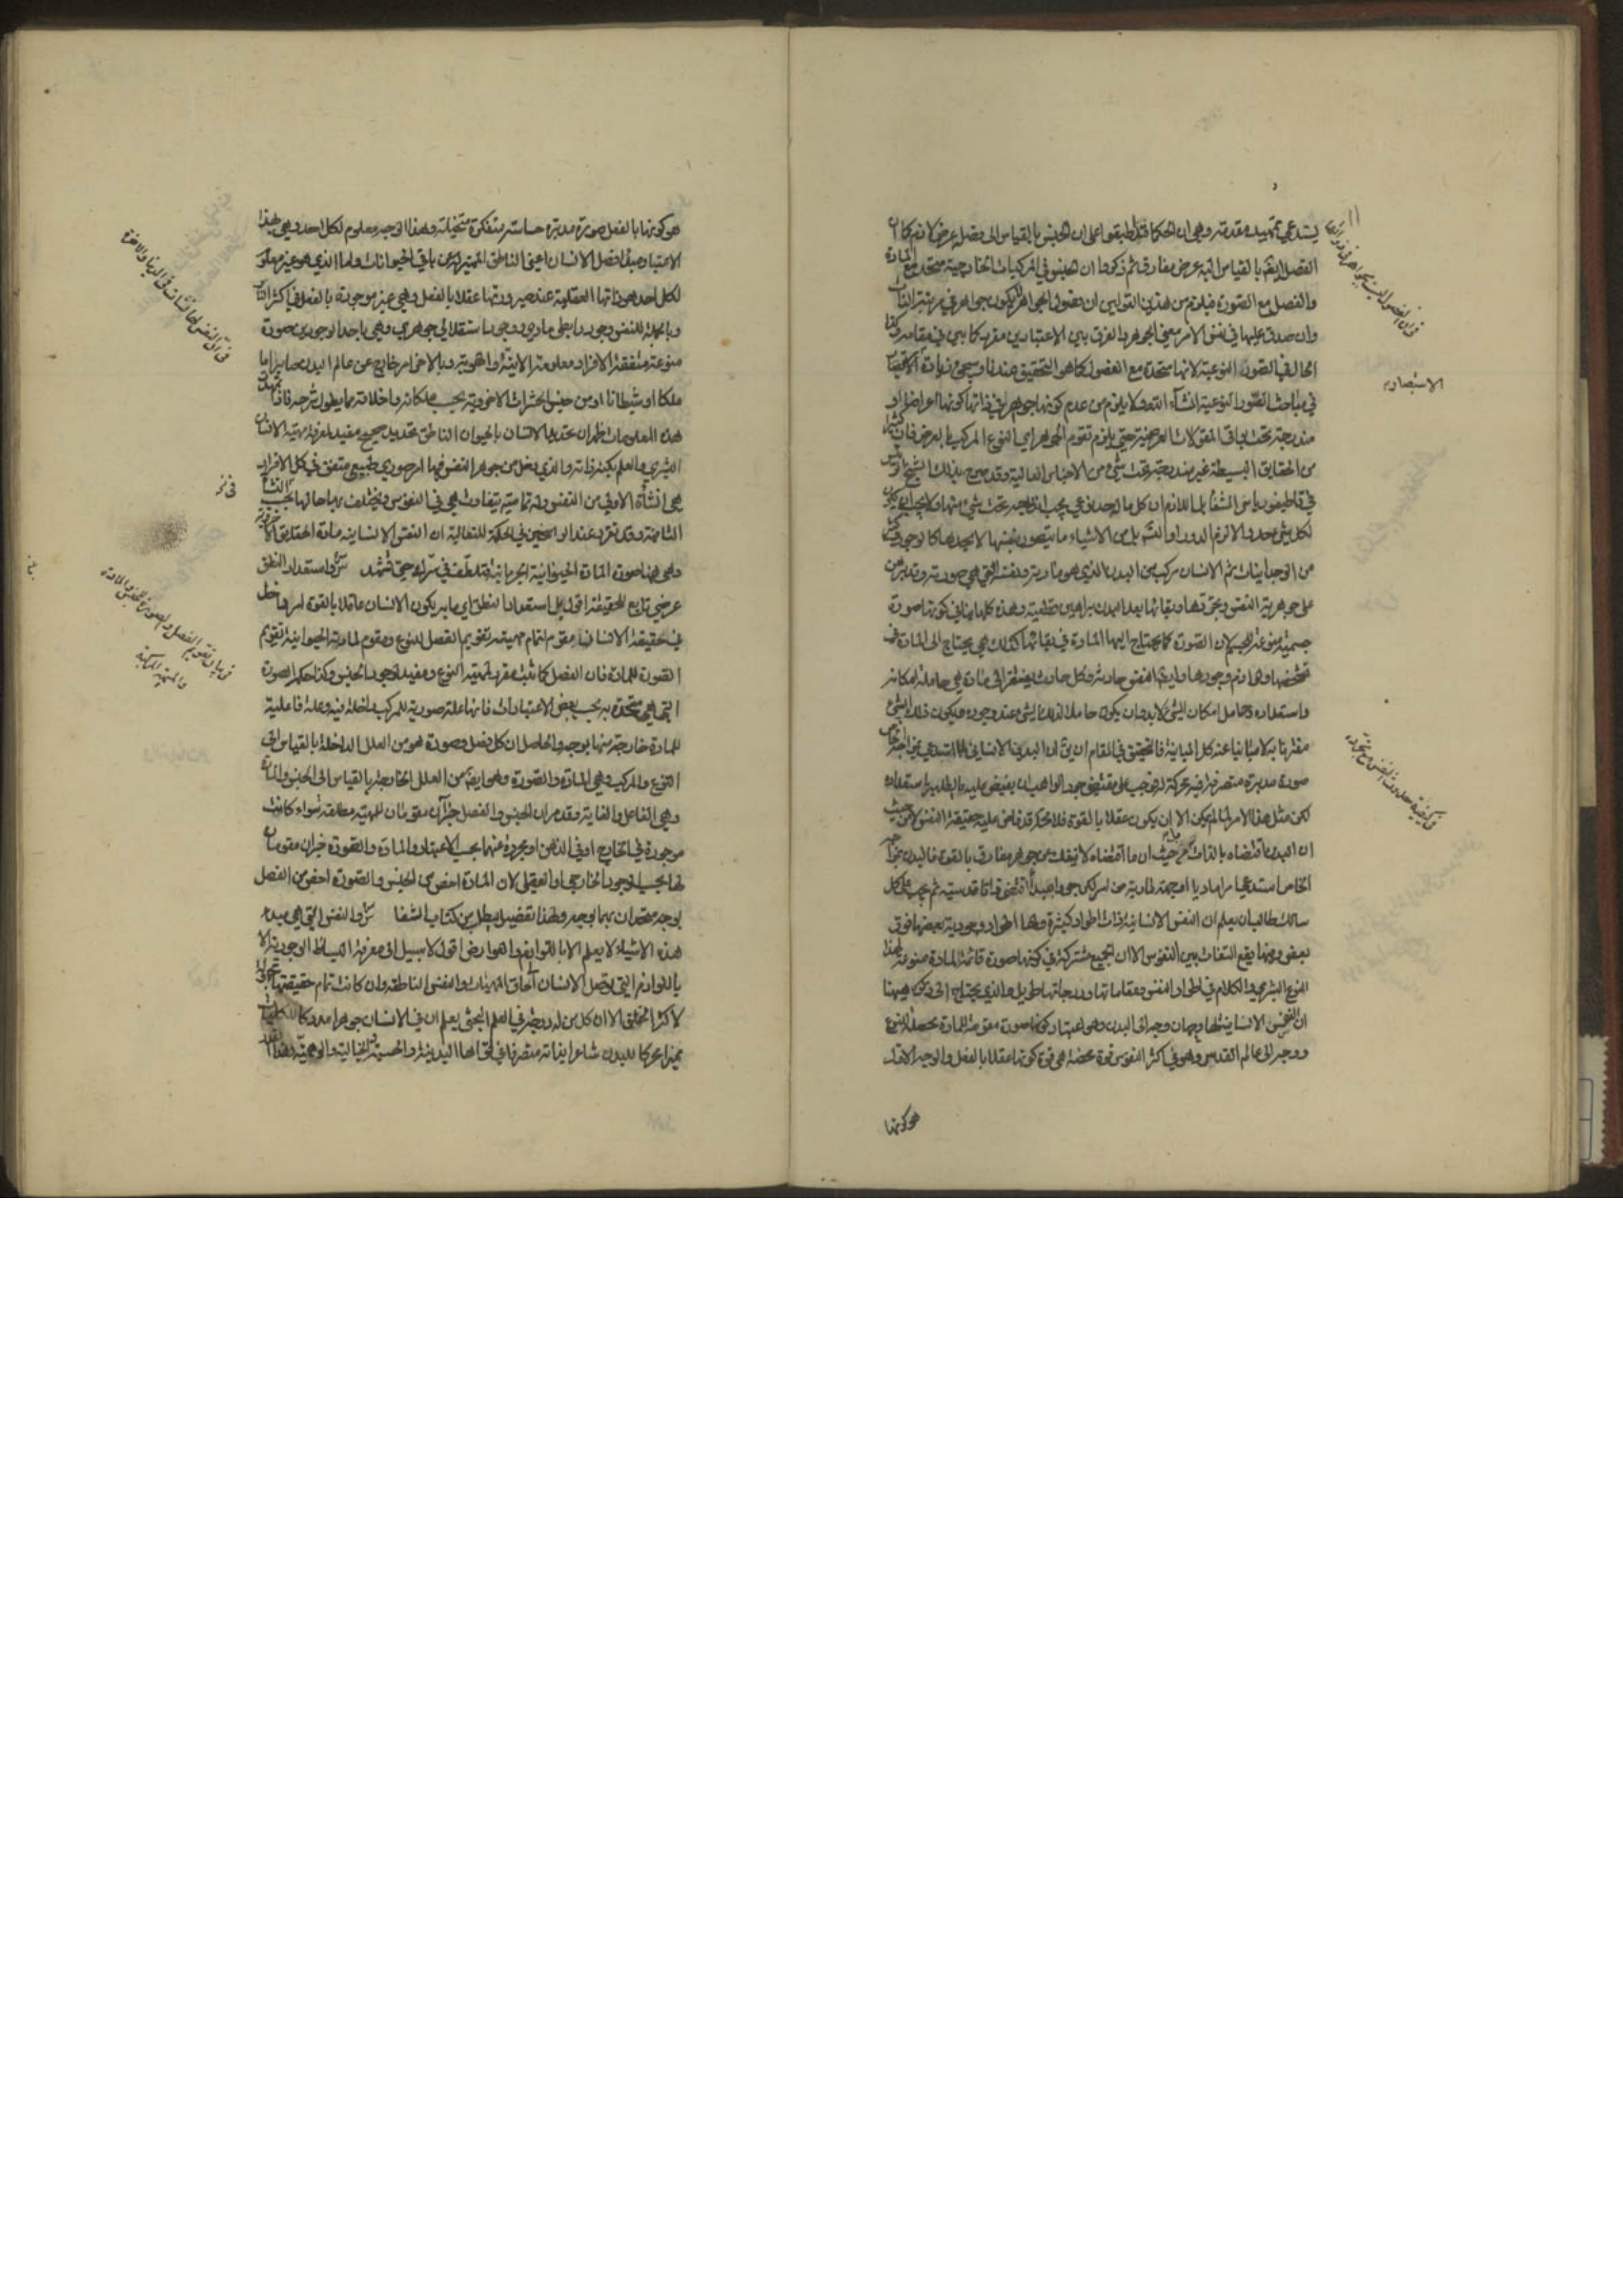 يستدعي تمهيد مقدمة وهي ان الحكما قد اطبقوا على ان الجنس بالقياس الى فصله عرض لازم كما ان
الفصل ايضا بالقياس اليه عرض مفارق ثم ذكروا ان الجنس في المركبات الخارجية متحد مع المادة
والفصل مع الصورة فيلزم من هذين القولين ان فصول الجواهر لا يكون جواهر في مرتبة
وان صدق عليها في نفس الامر معنى الجوهر والفرق بين الاعتبارين مقرر كما بين في مقامه وكذا
الحال في الصور النوعية لانها متحدة مع الفصول كما هو التحقيق عندنا وسيجئ زيادة
في مباحث الصور النوعية انشاء الله ولا يلزم من عدم كونها جواهر في ذاتها كونها اعراضا او
مندرجة تحت باقي المقولات العرضية حتى يلزم تقوم الجوهر اي النوع المركب بالعرض فان كثيرا
من الحقايق البسيطة غير مندرجة تحت شئ من الاجناس العالية وقد صرح بذلك الشيخ الرئيس
في قاطيغورياس الشفا بل اللازم ان كل ما له حد نوعي يجب اندراجه تحت شئ منها ولا يجب ان يكون
لكل شئ حد والا لزم الدور او التس بل من الاشياء ما يتصور بنفسها لا بحدها كالوجود وكثير
من الوجدانيات ثم الانسان مركب من البدن الذي هو مادته ونفسه التي هي صورته وقد برهن
على جوهرية النفس وتجردها وبقائها بعد البدن ببراهين قطعية وهذه كلها ينافي كونها صورة
جسمية منوعة للجسم لان الصورة كما يحتاج اليها المادة في بقائها كذلك هي يحتاج الى المادة في
تشخصها ولوازم وجودها وايضا النفس حادثة وكل حادث يفتقر الى مادة هي حاملة امكانه
واستعداده وحامل امكان الشئ لابد وان يكون حاملا لذلك الشئ عند وجوده ويكون ذلك الشئ
مقترنا به لا مباينا عنه كل المباينة فالتحقيق في المقام ان يق ان البدن الانساني لما استدعى بمزاجه الخاص
صورة مدبرة متصرفة فيه محركة له وجب على مقتضى جود الواهب ان يفيض عليه ما يطلبه باستعداده
لكن مثل هذا الامر لما لم يمكن الا ان يكون عقلا بالقوة فلا محالة قد فاض عليه حقيقة النفس لا من حيث
ان البدن اقتضاه بالذات بل من حيث ان ما اقتضاه لا ينفك عن جوهر مفارق بالقوة فالبدن بمزاجه
الخاص استدعى امرا ماديا او جهة مادية من امر لكن جود المبدأ اقتضى ذاتا قدسية ثم يجب على كل
سالك طالب ان يعلم ان النفس الانسانية ذات اطوار كثيرة ولها اطوار وجودية بعضها فوق
بعض وبها يقع التفات بين النفوس الا ان الجميع مشتركة في كونها صورة قائمة بالمادة منوعة لهذا
النوع البشري والكلام في اطوار النفس ومقاماتها ودرجاتها طويل والذي يحتاج الى ذكره هيهنا
ان النفس الانسانية لها وجهان وجه الى البدن وهو اعتبار كونها صورة مقومة للمادة محصلة للنوع
ووجه الى عالم القدس وهو في اكثر النفوس قوة محضة هي قوة كونها عقلا بالفعل والوجه الاول
هو كونها
الاستبصار
في كيفية حدوث النفس مع تجردها
هو كونها بالفعل صورة مدبرة حساسة متفكرة متخيلة وهذا الوجه معلوم لكل احد وهي بهذا
الاعتبار مبدأ فصل الانسان اعني الناطق المميز له عن باقي الحيوانات واما الذي هو غير معلوم
لكل احد هو ذاتها العقلية عند صيرورتها عقلا بالفعل وهي غير موجودة بالفعل في اكثر الناس
وبالجملة للنفس وجود رابطي مادي ووجود استقلالي جوهري وهي باحد الوجودين صورة
منوعة متفقة الافراد معلومة الانية والهوية وبالاخر امر خارج عن عالم البدن صاير اما
ملكا او شيطانا او من جنس الحشرات الاخروية بحسب ملكاته واخلاقه مما يطول شرحه فاذا تمهدت
هذه المعلومات ظهر ان تحديد الانسان بالحيوان الناطق تحديد صحيح مفيد لمعرفة مهية الانسان
البشري والعلم بكنه ذاته والذي دخل من جوهر النفس فيها امر صوري طبيعي متفق في كل الافراد
هي النشأة الاولى من النفس وله تمامية يتفاوت هي في النفوس ويختلف بها حالها بحسب النشأة
الثانية وقد تقرر عند الراسخين في الحكمة المتعالية ان النفس الانسانية مادة الحقايق الاخروية
وهي ههنا صورة المادة الحيوانية الجرمانية فتلطف في سرك حتى تشهد س واستعداد النطق
عرضي تابع للحقيقة اقول بل استعداد النطق اي ما به يكون الانسان عاقلا بالقوة امر داخل
في حقيقة الانسان مقوم لتمام مهيته تقويم الفصل للنوع ومقوم لمادته الحيوانية تقويم
الصورة للمادة فان الفصل كما ثبت مقرر لمهية النوع ومفيد لوجود الجنس وكذا حكم الصورة
التي هي متحدة به بحسب بعض الاعتبارات فانها علة صورية للمركب داخلة فيه وعلة فاعلية
للمادة خارجة منها بوجه والحاصل ان كل فصل وصورة هو من العلل الداخلة بالقياس الى
النوع والمركب وهي المادة والصورة وهو ايضا من العلل الخارجة بالقياس الى الجنس والمادة
وهي الفاعل والغاية وقد مر ان الجنس والفصل جزآن مقومان للمهية مطلقة سواء كانت
موجودة في الخارج او في الذهن او مجردة عنهما بحسب الاعتبار والمادة والصورة جزان مقومان
لها بحسب الوجود الخارجي او العقلي لان المادة اخص من الجنس والصورة اخص من الفصل
بوجه متحدان بهما بوجه ولهذا تفصيل يطلب من كتاب الشفا س والنفس التي هي مبدء
هذه الاشياء لا يعلم الا باللوازم والعوارض اقول لا سبيل الى معرفة البسائط الوجودية الا
باللوازم التي توصل الانسان الى حاق المهيات والنفس الناطقة وان كانت تمام حقيقتها مجهولة
لاكثر الخلق الا ان كل من له درجة في العلم البحثي يعلم ان في الانسان جوهرا مدركا للكليات
مميزا محركا للبدن شاعرا بذاته متصرفا في قواها البدنية والحسية والخيالية والوهمية وهذا القدر
في ان النفس لها نشآت في الدنيا والاخرة
في بيان تقويم الفصل والصورة للجنس والمادة
والمهية المركبة